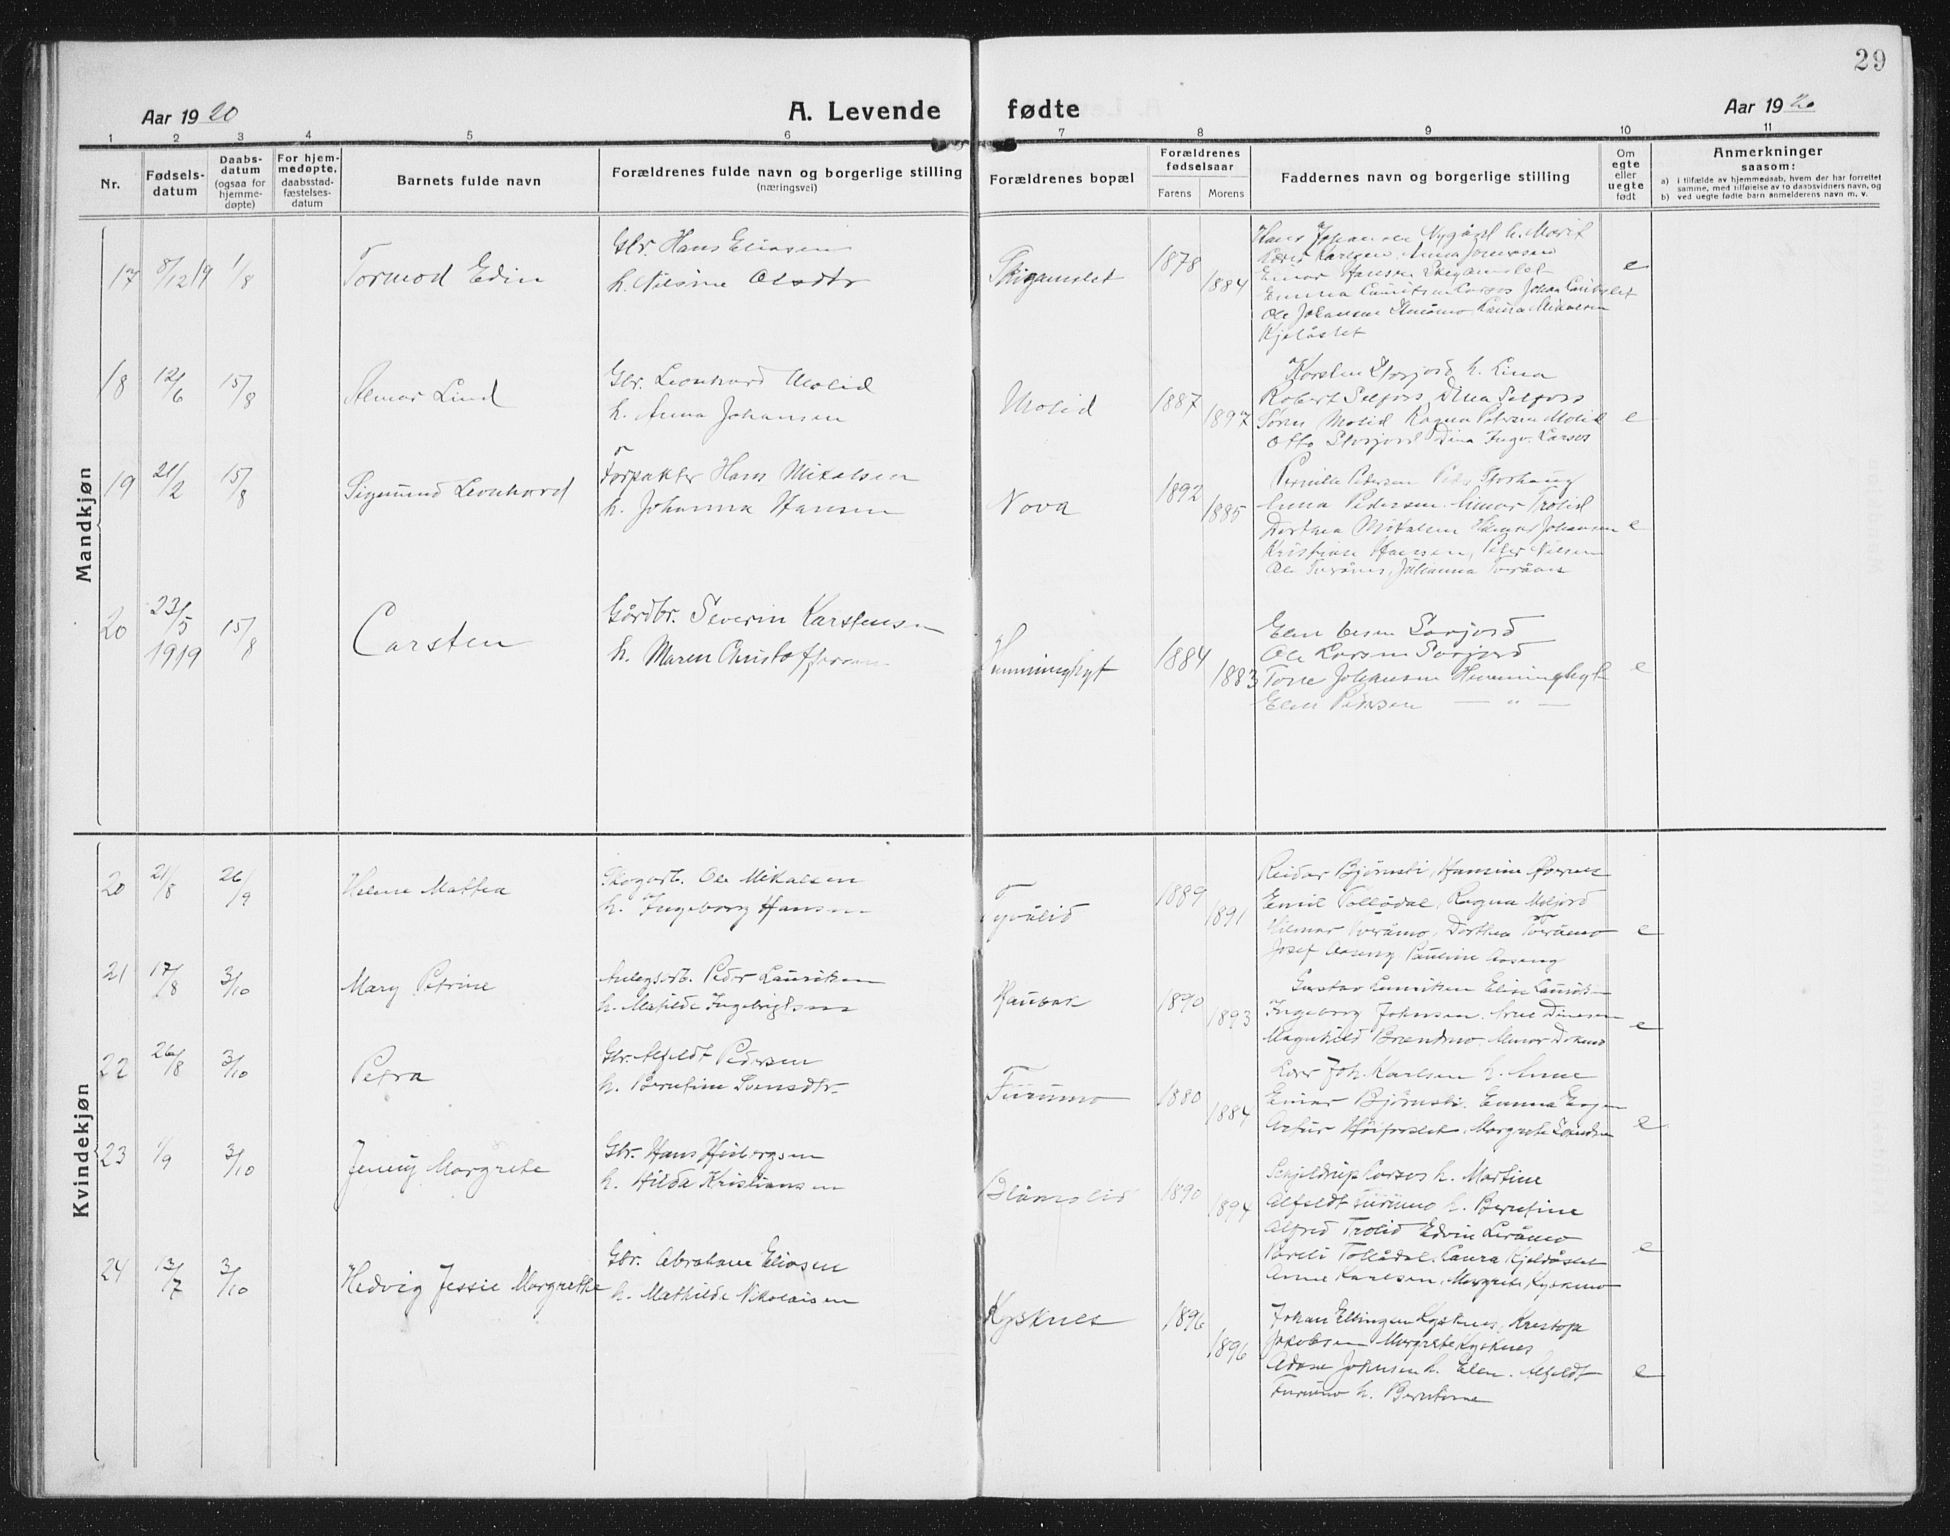 29
Aar 1920
A. Levende fødte
Aar 1920
1 2 3 4 5 6 7 8 9 10 11
Nr.
Fødsels-
datum
Daabs-
datum
(ogsaa for
hjemme-
døpte)
For hjem-
medøpte,
daabsstad-
fæstelses-
datum
Barnets fulde navn
Forældrenes fulde navn og borgerlige stilling
(næringsvei)
Forældrenes bopæl
Forældrenes
fødselsaar
Farens Morens
Faddernes navn og borgerlige stilling
Om
egte
eller
uegte
født
Anmerkninger
saasom:
a) i tilfælde av hjemmedaab, hvem der har forrettet
samme, med tilføielse av to daabsvidners navn, og
b) ved uegte fødte barn anmelderens navn m. v.
Mandkjøn
17 8/12 19 1/8 Tormod Edin
Gbr. Hans Eliasen
h. Nilsine Olsdtr
1878 1884
Hans Johansen Nygård h. Marit
Karlsen, Anna Jonassen
Einar Hansen
Emma Johan
Ole Johansen Laura Mikalsen
e
18 12/6 15/8 Almar Lind
Gbr. Leonhard Molid
h. Anna Johansen
Molid 1887 1897
Karsten Storjord h. Lina
Robert Selfors, Dina Selfors
Søren Molid Ragna Petersen Molid
Otto Storjord Dina Ingv. Larsos
e
19 21/2 15/8 Sigmund Leonhard
Forpakter Hans Mikalsen
h. Johanna Hansen
Nova 1892 1885
Pernille Petersen Storhaug
Anna Pedersen. Einar Trolid
Dorthea Mikalsen Hilmar Johansen
Kristian Hansen, Peter Nilsen
Ole Tverånes, Julianna Tverånes
e
20 23/5 1919 15/8 Carsten
Gårdbr. Severin Karstensen
h. Maren Christoffersen
1884 1883
Storjord
Ole Larsen Storjord
Tore Johansen
Elen Pedersen — " —
e
Kvindekjøn
20 21/8 26/9 Helene Mathea
Skogarb. Ole Mikalsen
h. Ingeborg Hansen
1889 1891
Reidar Bjørnsti, Hansine
Emil Tollådal, Ragna Moljord
Hilmar Tveråmo, Dorthea Tveråmo
Josef Aaseng Pauline Aaseng
e
21 17/8 3/10 Mary Petrine
Anlegsarb. Peder Lauritsen
h. Matilde Ingebrigtsen
Haubak 1890 1893
Gustav Lauritsen Elise Lauritsen
Ingeborg Johnsen. Arne Dinesen
Magnhild Brændmo
e
22 26/8 3/10 Petra
Gbr. Alfeldt Pedersen
h. Berntine Svensdtr
Furumo 1880 1884
Lærer Joh. Karlsen h. Anne
Einar Bjørnsti. Emma
Artur Høiforslet. Margrete
e
23 1/9 3/10 Jenny Margrete
Gbr. Hans Hisbergsen
h. Hilda Kristiansen
Blåmolid 1890 1894
Schjeldrup Larsos h. Martine
Alfeldt Furumo h. Berntine
Alfred Trolid Edvin Leråmo
Tollådal. Laura Kjeldåslet
Anne Karlsen, Margrete
e
24 13/7 3/10 Hedvig Jessie Margrethe
Gbr. Abraham Eliasen
h. Mathilde Nikolaisen
Kysknes 1896 1896
Johan Ellingsen Kysknes, Kristofa
Jakobsen Margrete Kysknes
Adone Johnsen h. Elen. Alfeldt
Furumo h. Berntine
e